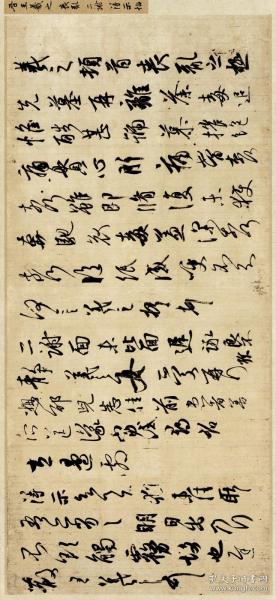 晋王羲之 喪亂 二謝 得示帖
羲之頓首喪亂之極
先墓再離荼毒追
惟酷甚號慕摧絕
痛貫心肝痛當奈何
奈何雖即脩復未獲
奔馳哀毒益深奈何
奈何臨紙感哽不知
何言羲之頓首頓首
二謝面未比面遲詠良
不靜羲之女愛再拜
想邵兒悉佳前患者善
所送議當試尋省
左邊劇
得示知足下猶未佳耿
耿吾亦劣劣明日出乃行
不欲觸霧故也遲
散王羲之頓首
孔夫子旧书网